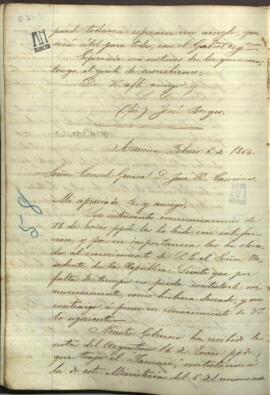 puede todavia esperarse un arreglo, que
seria útil para todos, con el Gobno Arg
Esperando sus noticias de los quince,
tengo el gusto de suscribirme,
De V. affo amigo y
S. S.
(fir) José Berges.
Asuncion Febrero 6 de 1864.
Señor Consul General D. José R. Caminos.
Mi apreciado Sr. y amigo:
Sus interesantes comunicaciones de
18 de Enero ppdo. las he leido con satisfac
cion, y por su importancia las he eleva
do al conocimiento de S. E. el Señor Pre
sidente de la República. Siento que por
falta de tiempo no pueda contestarle mi
nuciosamente, como hubiera deseado, y me
contraigo á poner en conocimiento de V.
lo siguiente.
Nuestro Gobierno ha recibido la
nota del Argentino 16 de Enero ppdo.,
que trajo el
la de este Ministerio del 6 del mismo mes
58